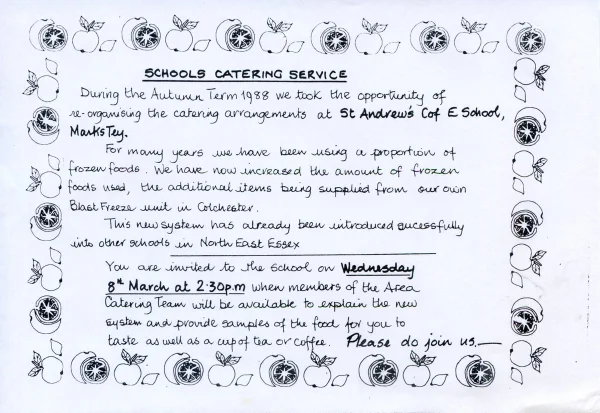 SCHOOLS CATERING SERVICE
During the Autumn Term 1988 we took the opportunity of
re-organising the catering arrangements at St Andrew's C of E School,
Marks Tey.
For many years we have been using a proportion of
frozen foods. We have now increased the amount of frozen
foods used, the additional items being supplied from our own
Blast Freeze unit in Colchester.
This new system has already been introduced sucessfully
into other schools in North East Essex
You are invited to the school on Wednesday
8th March at 2·30p.m when members of the Area
Catering Team will be available to explain the new
system and provide samples of the food for you to
taste as well as a cup of tea or coffee. Please do join us.—